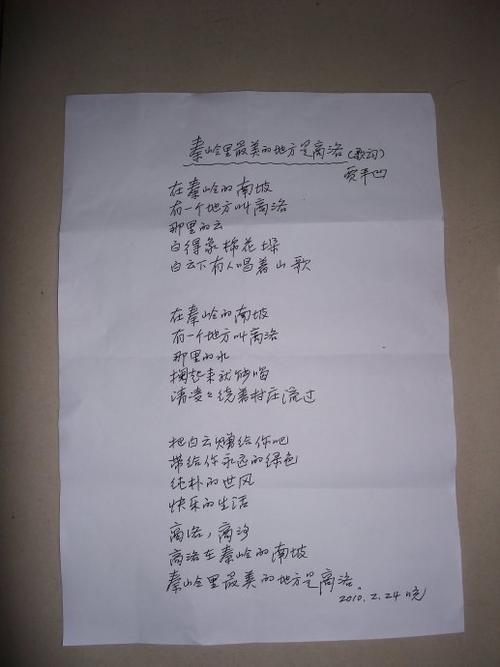 秦岭里最美的地方是商洛（歌词）
贾平凹
在秦岭的南坡
有一个地方叫商洛
那里的云
白得象棉花垛
白云下有人唱着山歌
在秦岭的南坡
有一个地方叫商洛
那里的水
掬起来就能喝
清凌々绕着村庄流过
把白云赠给你吧
带给你永远的绿色
纯朴的世风
快乐的生活
商洛，商洛
商洛在秦岭的南坡
秦岭里最美的地方是商洛。
2010.2.24晚